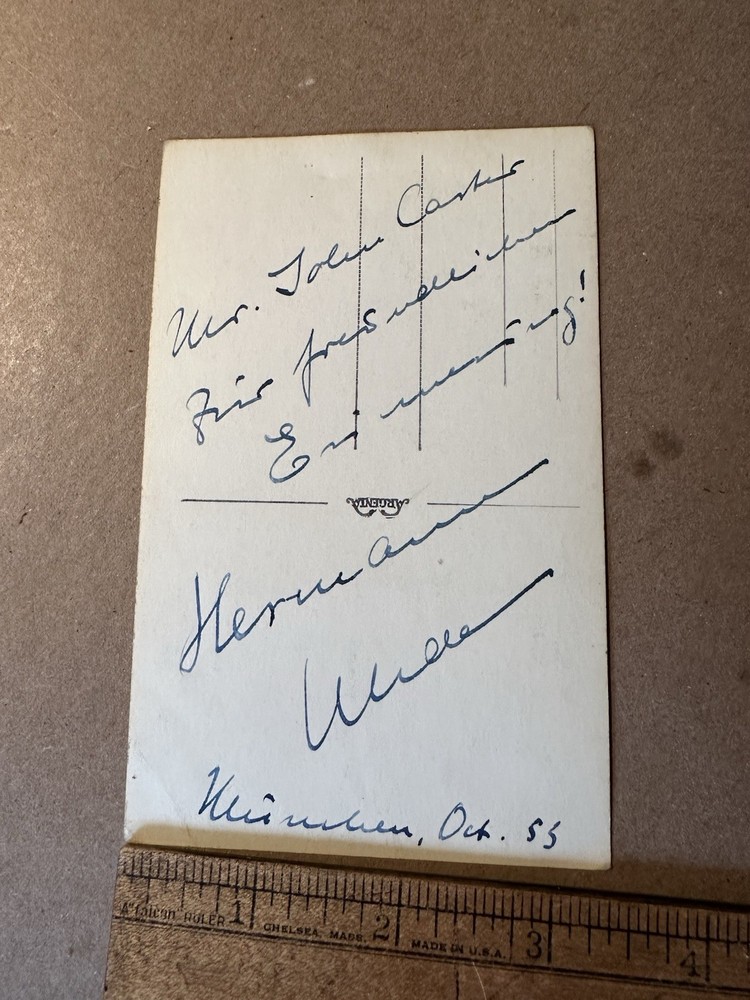 Mr. John Carter
Zur freundlichen
Erinnerung!
ARGENTA
Hermann
Uhde
München, Oct. 55
American RULER 1 2 3 4
CHELSEA, MASS. MADE IN U.S.A.